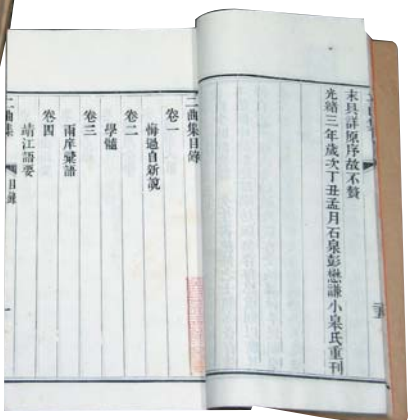 末具詳原序故不贅
光緒三年歲次丁丑孟月石泉彭懋謙小泉氏重刊
二曲集
二曲集目錄
卷一
悔過自新說
卷二
學髓
卷三
兩庠彙語
卷四
靖江語要
二曲集
目錄
一